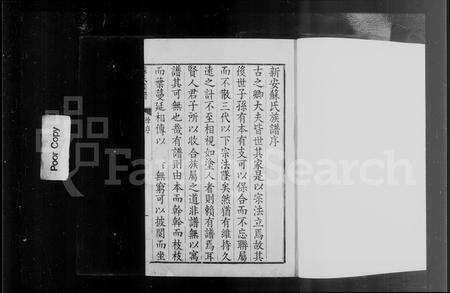 新安蘇氏族譜序
古之卿大夫皆世其家是以宗法立焉故其
後世子孫有本有支可以保合而不忘聯屬
而不散三代以下宗法隳矣然猶有維持久
遠之計不至相視如塗人者則賴有譜焉耳
賢人君子所以收合族屬之道非譜無以寓
譜其可無也哉有譜則由本而幹幹而枝枝
而葉蔓延相傳以無窮可以披閱而坐
Poor Copy
FamilySearch